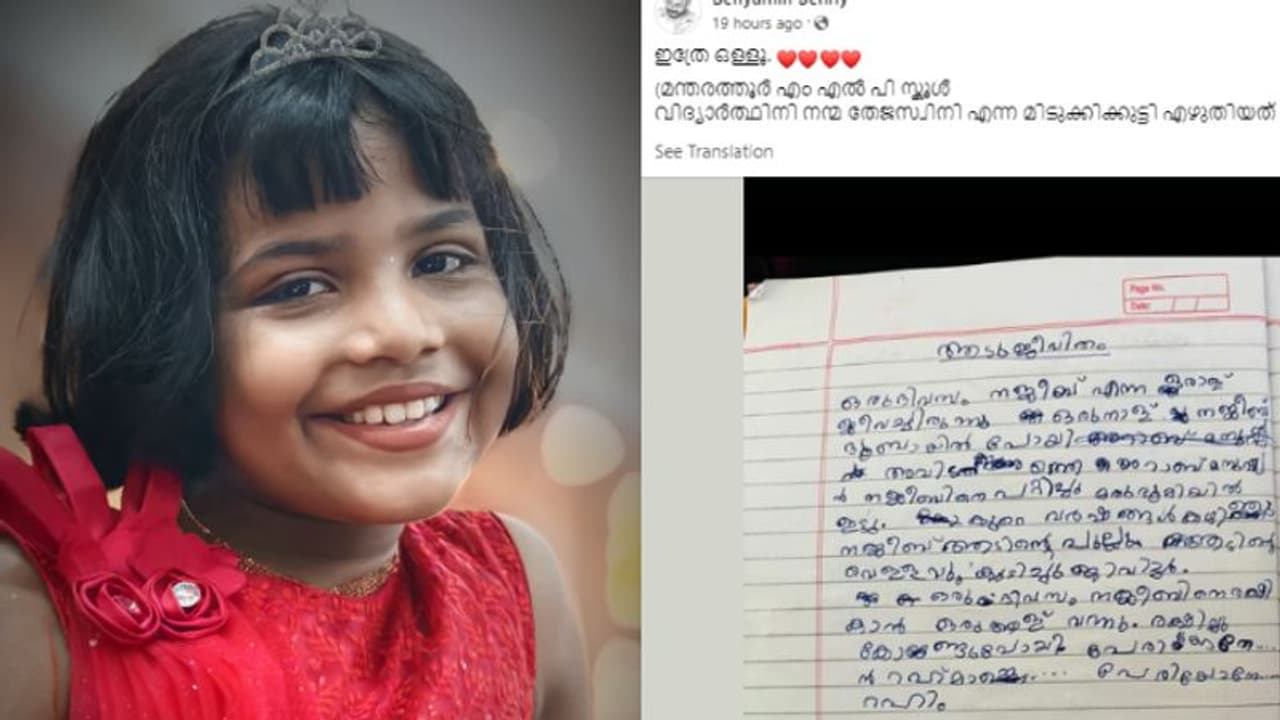 Benyamin Benny
19 hours ago
ഇത്രേ ഒള്ളൂ.
മന്തരത്തൂർ എം എൽ പി സ്കൂൾ
വിദ്യാർത്ഥിനി നന്മ തേജസ്വിനി എന്ന മിടുക്കിക്കുട്ടി എഴുതിയത്
See Translation
Page No.
Date:
ആടുജീവിതം
ഒരുദിവസം നജീബ് എന്ന ഒരാള്
ജീവച്ചിരുന്നു ഒരുനാള് നജീബ്
ദുബായിൽ പോയി
അവിടത്തെ അറാബ് മനുഷ്യ
ൻ നജീബിനെ പറ്റിച്ചു മരുഭൂമിയിൽ
ഇട്ടു. കുറെ വർഷങ്ങൾ കഴിഞ്ഞു
നജീബ് ആടിന്റെ പുല്ലും ആടിന്റെ
വെള്ളവും കുടിച്ചു ജീവിച്ചു.
ഒരു ദിവസം നജീബിനെ രക്ഷി
കാൻ ഒരാള് വന്നു. രക്ഷിച്ചു
കോണ്ടുപോയി
പെരിയോനെ....
റഹിം